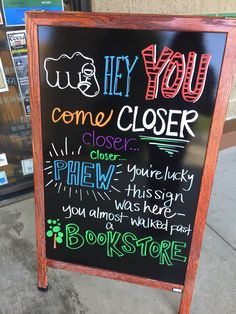 HEY YOU
come CLOSER
closer...
closer...
PHEW you're lucky
this sign
was here—
you almost walked past
a
BOOKSTORE